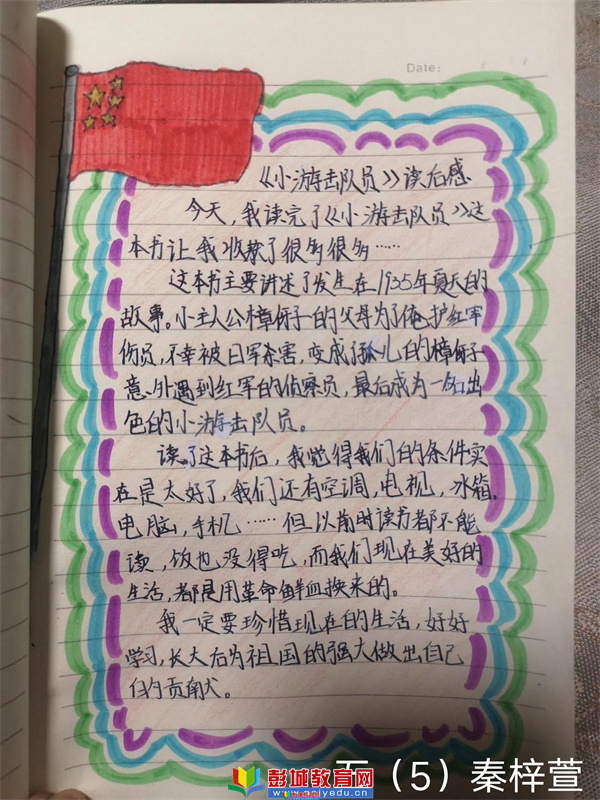 Date:
《小游击队员》读后感
今天，我读完了《小游击队员》这
本书让我收获了很多很多……
这本书主要讲述了发生在1935年夏天的
故事。小主人公樟伢子的父母为了掩护红军
伤员，不幸被白军杀害，变成孤儿的樟伢子
意外遇到红军的侦察员，最后成为一名出
色的小游击队员。
读了这本书后，我觉得我们的条件实
在是太好了，我们还有空调，电视，冰箱，
电脑，手机……但以前时读书都不能
读，饭也没得吃，而我们现在美好的
生活，都是用革命鲜血换来的。
我一定要珍惜现在的生活，好好
学习，长大后为祖国的强大做出自己
的贡献。
（5）秦梓萱
彭城教育网